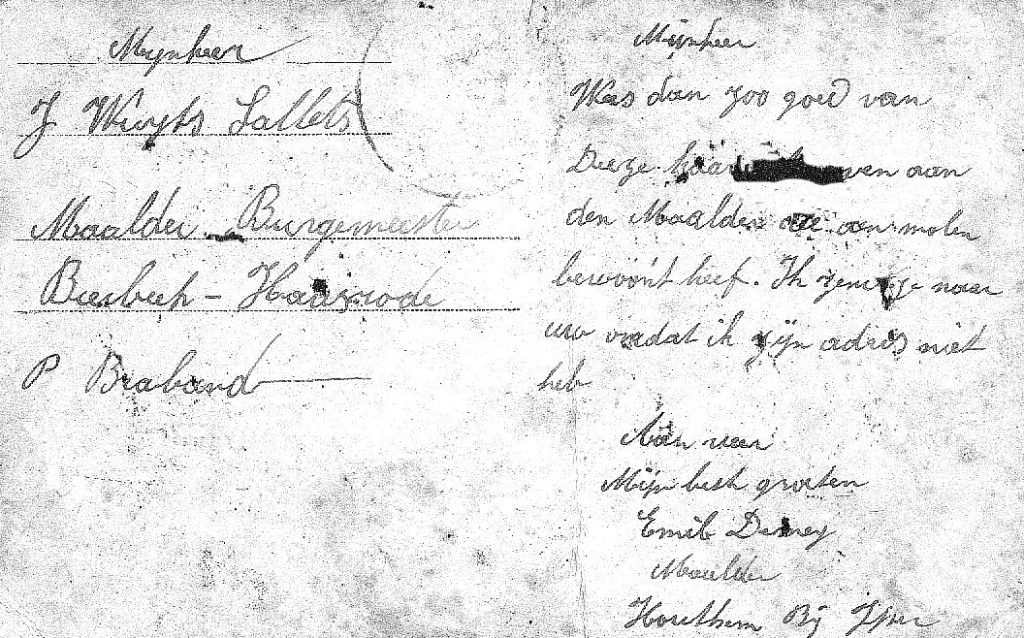 Mynheer
J Wuyts Sallets
Maalder Burgemeester
Bierbeek - Haasrode
P Braband
Mijnheer
Was dan zoo goed van
Deeze aan
den Maalder die aan molen
bewoont heef. Ik zend ze naar
uw omdat ik zijn adres niet
heb
Aan veer
Mijn best groeten
Emil Demey
Maalder
Houthem Bij Iper